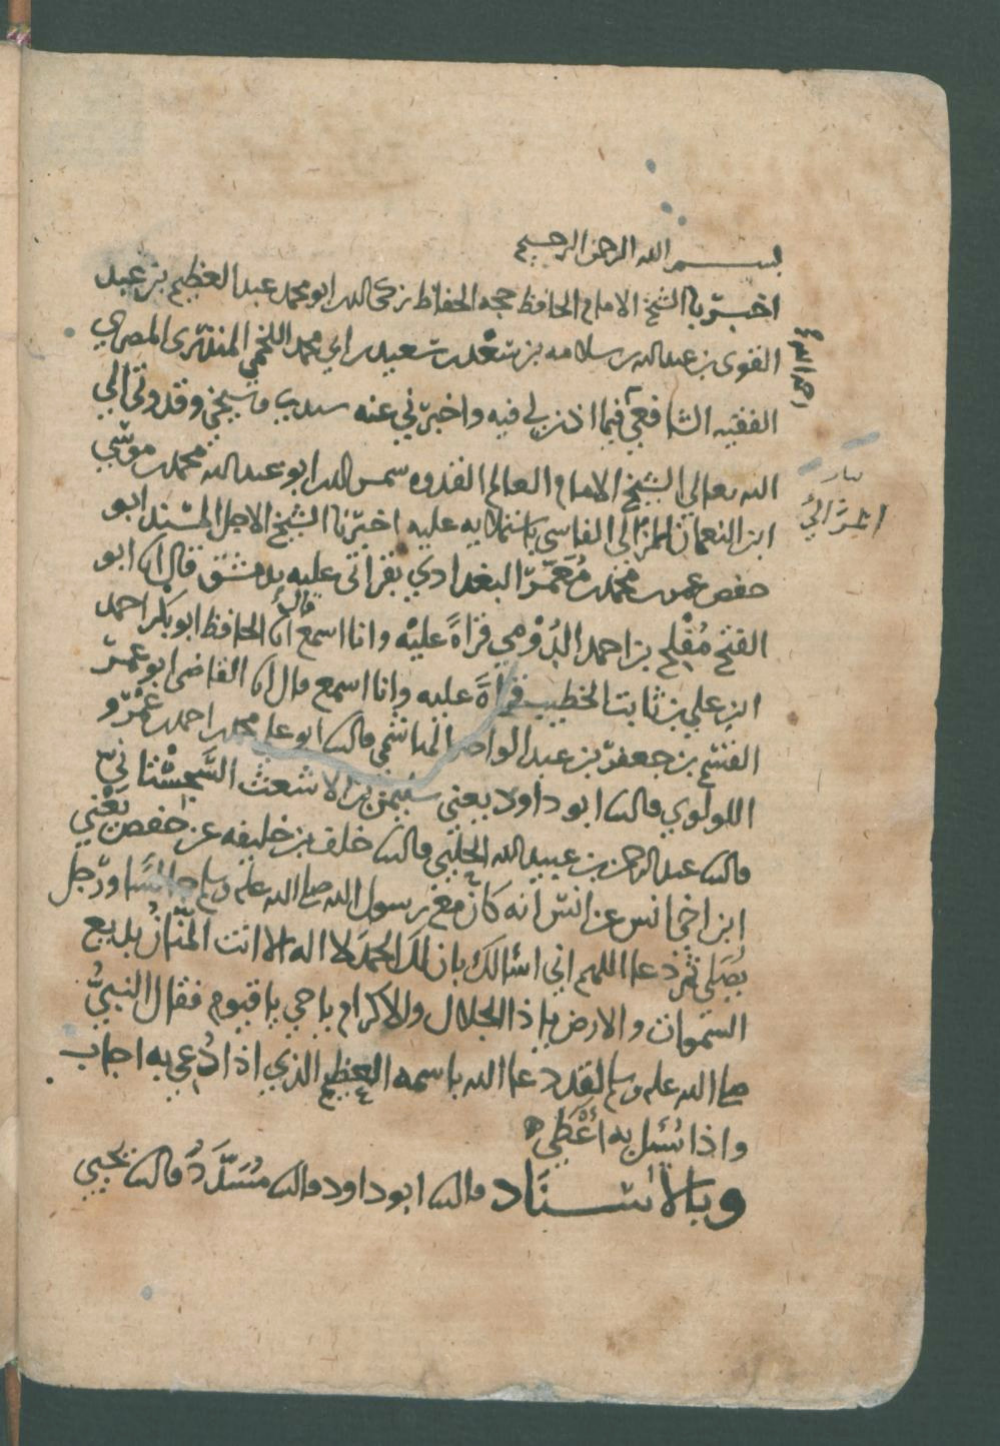 بسم الله الرحمن الرحيم
اخبرنا الشيخ الامام الحافظ حجه الحفاظ زكي الدين ابو محمد عبد العظيم بن عبد
القوى بن عبد الله بن سلامه بن سعد بن سعيد بن ابي محمد اللخمي المنذرى المصري
الفقيه الشافعي فيما اذن لي فيه واخبرني عنه سيدي وشيخي وقدوتي الي
الله تعالي الشيخ الامام العالم القدوه شمس الدين ابو عبد الله محمد بن موسي
ابن النعمان المزالي الفاسي باستملايه عليه اخبرنا الشيخ الاجل المسند ابو
حفص عمر بن محمد بن مُعَمَّر البغدادي بقراتي عليه بدمشق قال انا ابو
الفتح مُفْلِح بن احمد الدُوْمي قراةً عليْه وانا اسمع قال انا الحافظ ابو بكر احمد
ابن علي بن ثابت الخطيب قراةً عليه وانا اسمع قال انا القاضي ابو عمر
القسم بن جعفر بن عبد الواحد الهاشمي قال انا ابو علي محمد بن احمد بن عَمْرو
اللولوي قال نا ابو داود يعني سليمن بن الاشعث السَّجِسْتانيّ
قال نا عبد الرحمن بن عبيد الله الحلبي قال نا خلف بن خليفه عن حفص يَعْني
ابن اخي انس عن انس انه كان مع رسول الله صلى الله عليه وسلم جالسًا ورجل
يُصَلي ثم دعا اللهم اني اسالك بان لك الحمد لا اله الا انت المنّانُ بديع
السموات والارض يا ذا الجلال والاكرام يا حي يا قيوم فقال النبيُّ
صلى الله عليه وسلم لقد دعا الله باسمه العظيم الذي اذا دُعي به اجاب
واذا سُئل به اعْطَى
وبالاسناد قال نا ابو داود قال نا مُسَدَّدٌ قال نا يحيي